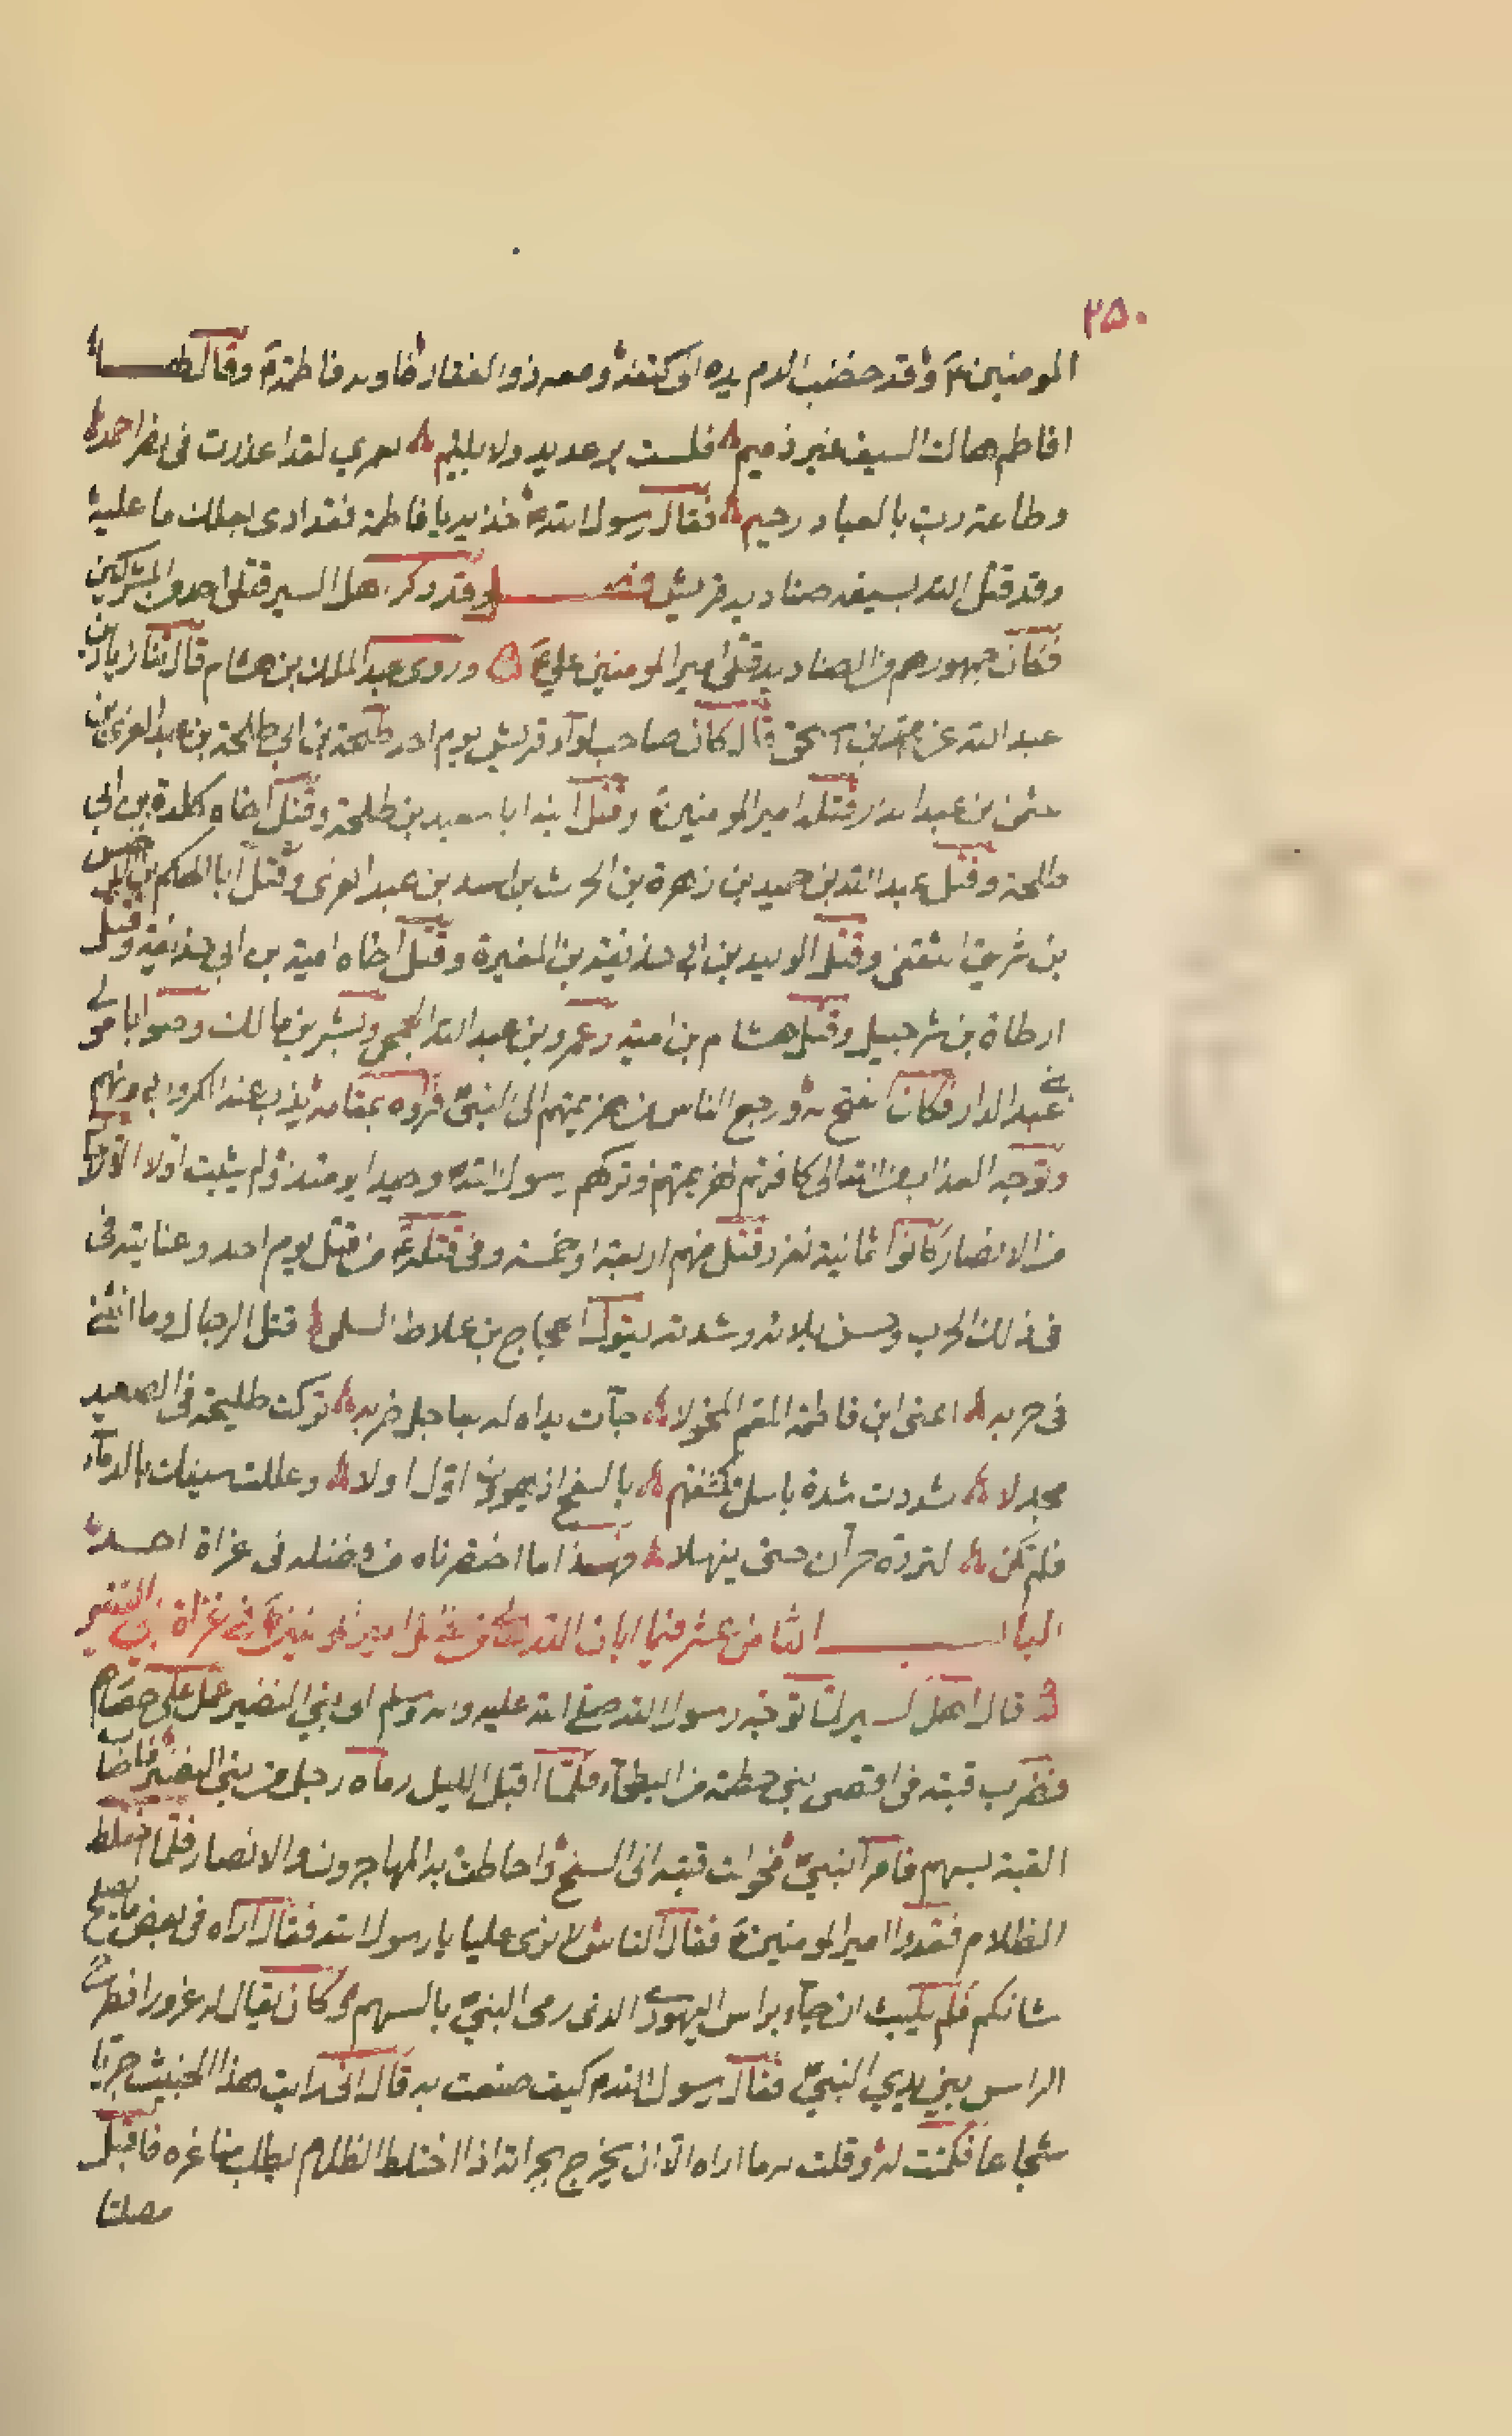 ٢٥٠
المومنين ع وقد خضب الدم يده الى كتفه ومعه ذو الفقار فناوله فاطمة ع وقال لها
افاطم هاك السيف غير ذميم فلست برعديد ولا بلئيم لعمري لقد اعذرت فى نصر احمد
وطاعة رب بالعباد رحيم فقال رسول الله خذيه يا فاطمة فقد ادى بعلك ما عليه
وقد قتل الله بسيفه صناديد قريش فصل وقد ذكر اهل السير قتلى احد من المشركين
فكان جمهورهم من الصناديد قتلى امير المومنين علي ع وروى عبد الملك بن هشام قال ثنا زياد بن
عبد الله عن محمد بن اسحق قال كان صاحب لواء قريش يوم احد طلحة بن ابي طلحة بن عبد العزى بن
عثمن بن عبد الدار قتله امير المومنين ع وقتل ابنه ابا سعيد بن طلحة وقتل اخاه كلدة بن ابي
طلحة وقتل عبد الله بن حميد بن زهرة بن الحرث بن اسد بن عبد العزى وقتل ابا الحكم بن الاخنس
بن شريق الثقفى وقتل الوليد بن ابى حذيفة بن المغيرة وقتل اخاه امية بن ابي حذيفة وقتل
ارطاة بن شرحبيل وقتل هشام بن امية وعمرو بن عبد الله الجمحي وبشر بن مالك وصوابا مولى
بني عبد الدار فكان الفتح له ورجع الناس من هزيمتهم الى النبي فراوه بمقامه يذب عنه
وتوجه العتاب من الله تعالى كافتهم لهزيمتهم وتركهم رسول الله وحيدا يومئذ ولم يثبت اولا الا
من الانصار كانوا ثمانية نفر وقتل منهم اربعة او خمسة وفى قتله ع من قتل يوم احد وعنايته فى
فى ذلك الحرب وحسن بلائه وشدته يقول الحجاج بن علاط السلمى قتل الرجال وما انثنى
فى حربه اعنى ابن فاطمة المعم المخولا جآت يداه له بعاجل ضربه تركت طليحة فى الصعيد
مجدلا شددت شدة باسل فكشفتهم بالسفح اذ يهوون اول اولا وعللت سيفك بالدماء
فلم تكن لترده حران حتى ينهلا وهذا ما اختصرناه من فضله فى غزاة احد
الباب الثامن عشر فيما ابان الله من فضل امير المومنين ع في غزاة بني النضير
قد قال اهل السير لما توجه رسول الله صلى الله عليه واله وسلم الى بني النضير عمل على حصارهم
فضرب قبته فى اقصى بني حطمة من البطحاء فلما اقبل الليل رماه رجل من بني النضير فاصاب
القبة بسهم فامر النبي فحولت قبته الى السفح واحاطت به المهاجرون والانصار فلما اختلط
الظلام فقدوا امير المومنين ع فقال الناس لا نرى عليا يا رسول الله فقال اراه فى بعض ما يصلح
شانكم فلم يلبث ان جاء براس اليهودي الذى رمى النبي بالسهم وكان يقال له غرورا فطرح
الراس بين يدي النبي فقال رسول الله كيف صنعت به قال انى رايت هذا الخبيث جريا
شجاعا فكمنت له وقلت ما اراه الا ان يخرج بجراته اذا اختلط الظلام لطلب منا غره فاقبل
مصلتا